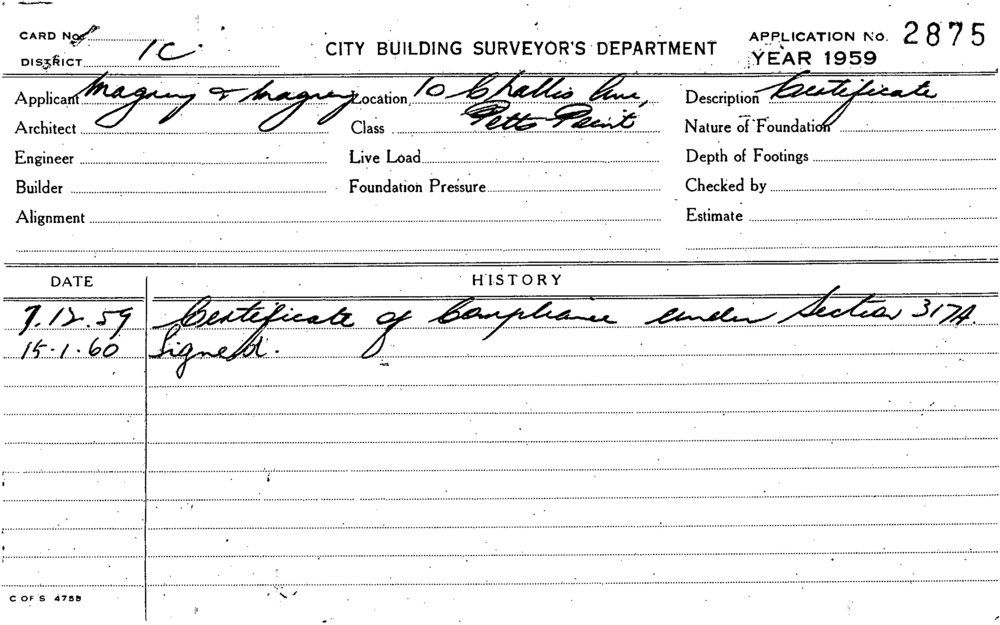 CARD No.
DISTRICT 1C.
CITY BUILDING SURVEYOR'S DEPARTMENT
APPLICATION No. 2875
YEAR 1959
Applicant Magney & Magney Location 10 Challis Ave, Description Certificate
Architect Class Potts Point Nature of Foundation
Engineer Live Load Depth of Footings
Builder Foundation Pressure Checked by
Alignment Estimate
DATE HISTORY
7.12.59 Certificate of Compliance under Section 317A.
15.1.60 Signed.
C OF S 475B